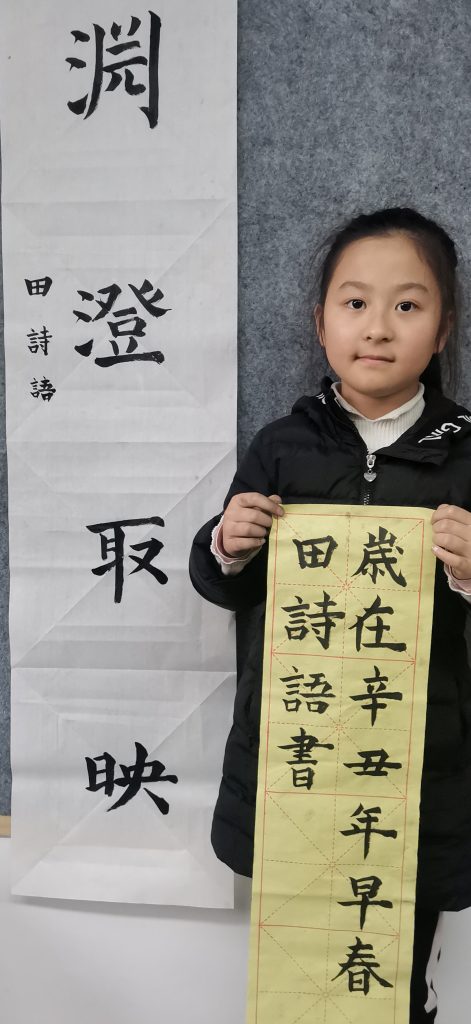 淵澄取映
田詩語
歲在辛丑年早春
田詩語書